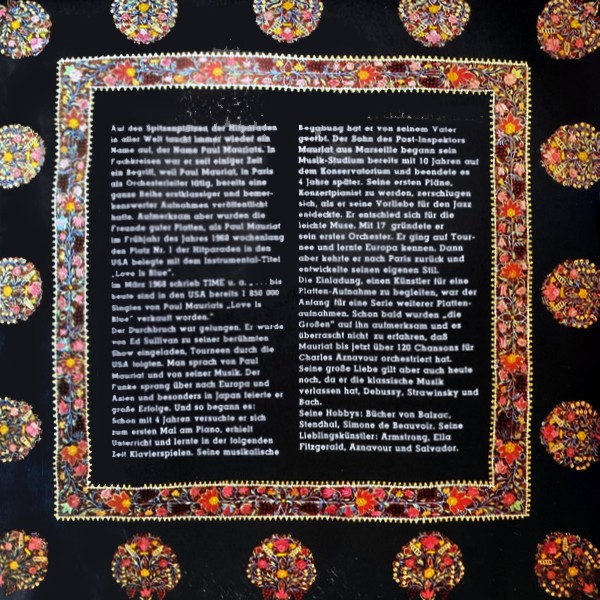 Auf den Spitzenplätzen der Hitparaden
in aller Welt taucht immer wieder ein
Name auf, der Name Paul Mauriats. In
Fachkreisen war er seit einiger Zeit
ein Begriff, weil Paul Mauriat, in Paris
als Orchesterleiter tätig, bereits eine
ganze Reihe erstklassiger und bemer-
kenswerter Aufnahmen veröffentlicht
hatte. Aufmerksam aber wurden die
Freunde guter Platten, als Paul Mauriat
im Frühjahr des Jahres 1968 wochenlang
den Platz Nr. 1 der Hitparaden in den
USA belegte mit dem Instrumental-Titel
„Love Is Blue".
Im März 1968 schrieb TIME u. a. „... bis
heute sind in den USA bereits 1 850 000
Singles von Paul Mauriats „Love Is
Blue" verkauft worden."
Der Durchbruch war gelungen. Er wurde
von Ed Sullivan zu seiner berühmten
Show eingeladen, Tourneen durch die
USA folgten. Man sprach von Paul
Mauriat und von seiner Musik. Der
Funke sprang über nach Europa und
Asien und besonders in Japan feierte er
große Erfolge. Und so begann es:
Schon mit 4 Jahren versuchte er sich
zum ersten Mal am Piano, erhielt
Unterricht und lernte in der folgenden
Zeit Klavierspielen. Seine musikalische
Begabung hat er von seinem Vater
geerbt. Der Sohn des Post-Inspektors
Mauriat aus Marseille begann sein
Musik-Studium bereits mit 10 Jahren auf
dem Konservatorium und beendete es
4 Jahre später. Seine ersten Pläne,
Konzertpianist zu werden, zerschlugen
sich, als er seine Vorliebe für den Jazz
entdeckte. Er entschied sich für die
leichte Muse. Mit 17 gründete er
sein erstes Orchester. Er ging auf Tour-
nee und lernte Europa kennen. Dann
aber kehrte er nach Paris zurück und
entwickelte seinen eigenen Stil.
Die Einladung, einen Künstler für eine
Platten-Aufnahme zu begleiten, war der
Anfang für eine Serie weiterer Platten-
aufnahmen. Schon bald wurden „die
Großen" auf ihn aufmerksam und es
überrascht nicht zu erfahren, daß
Mauriat bis jetzt über 120 Chansons für
Charles Aznavour orchestriert hat.
Seine große Liebe gilt aber auch heute
noch, da er die klassische Musik
verlassen hat, Debussy, Strawinsky und
Bach.
Seine Hobbys: Bücher von Balzac,
Stendhal, Simone de Beauvoir. Seine
Lieblingskünstler: Armstrong, Ella
Fitzgerald, Aznavour und Salvador.